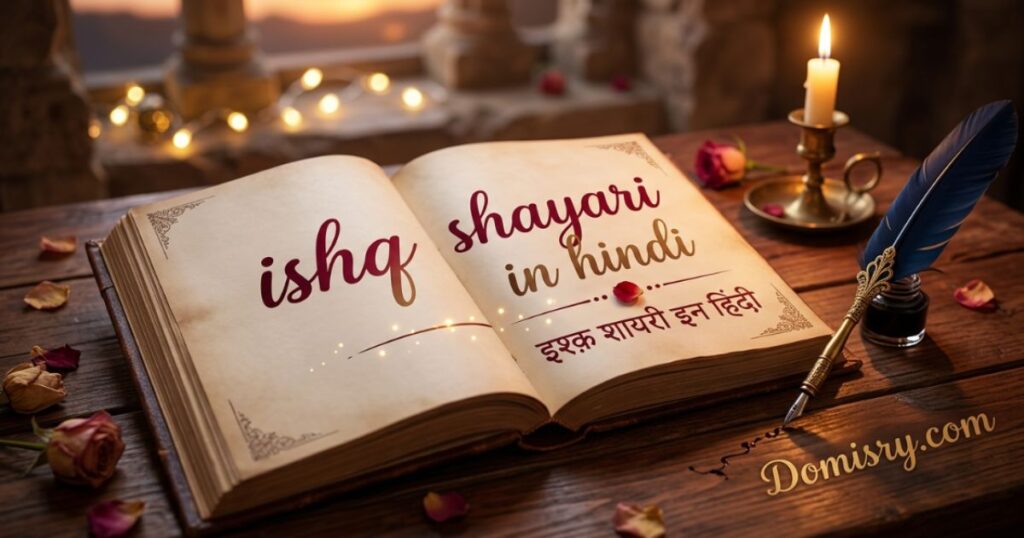 ishq
shayari
in hindi
इश्क़ शायरी इन हिंदी
Domisry.com